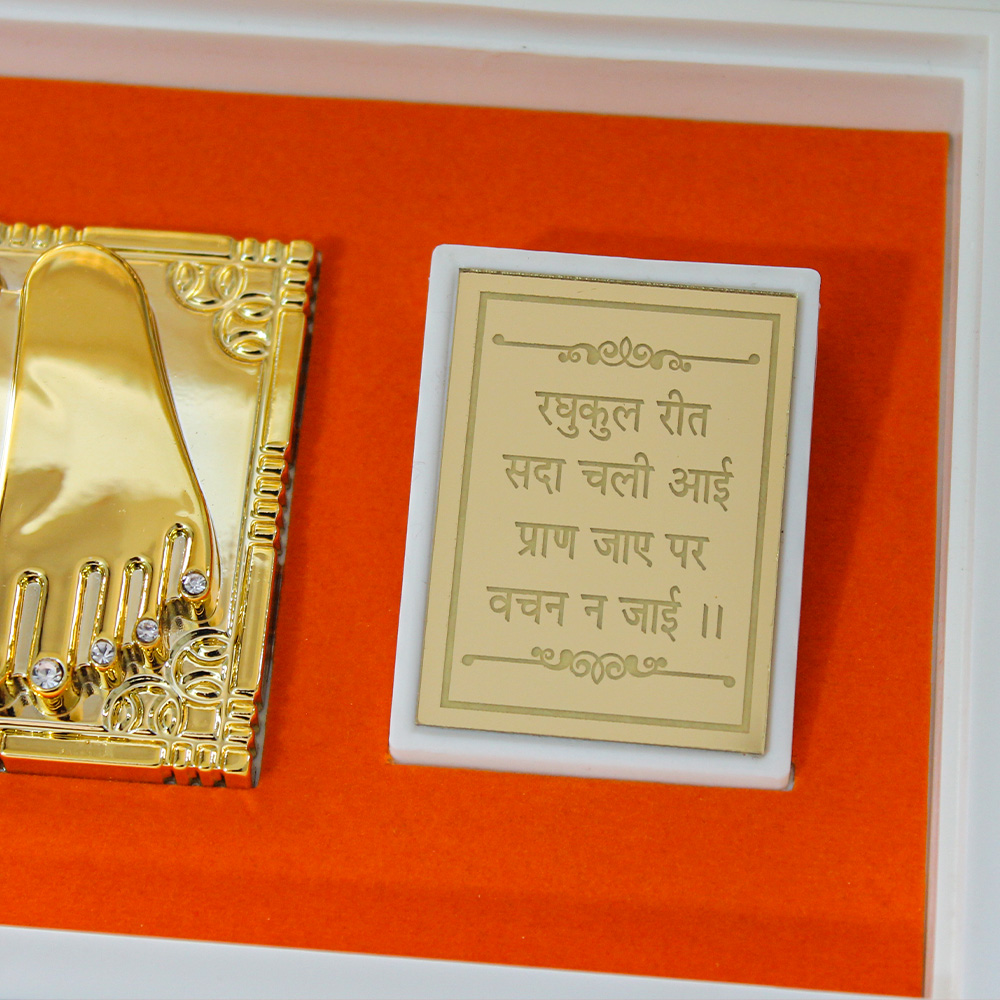 रघुकुल रीत
सदा चली आई
प्राण जाए पर
वचन न जाई ।।